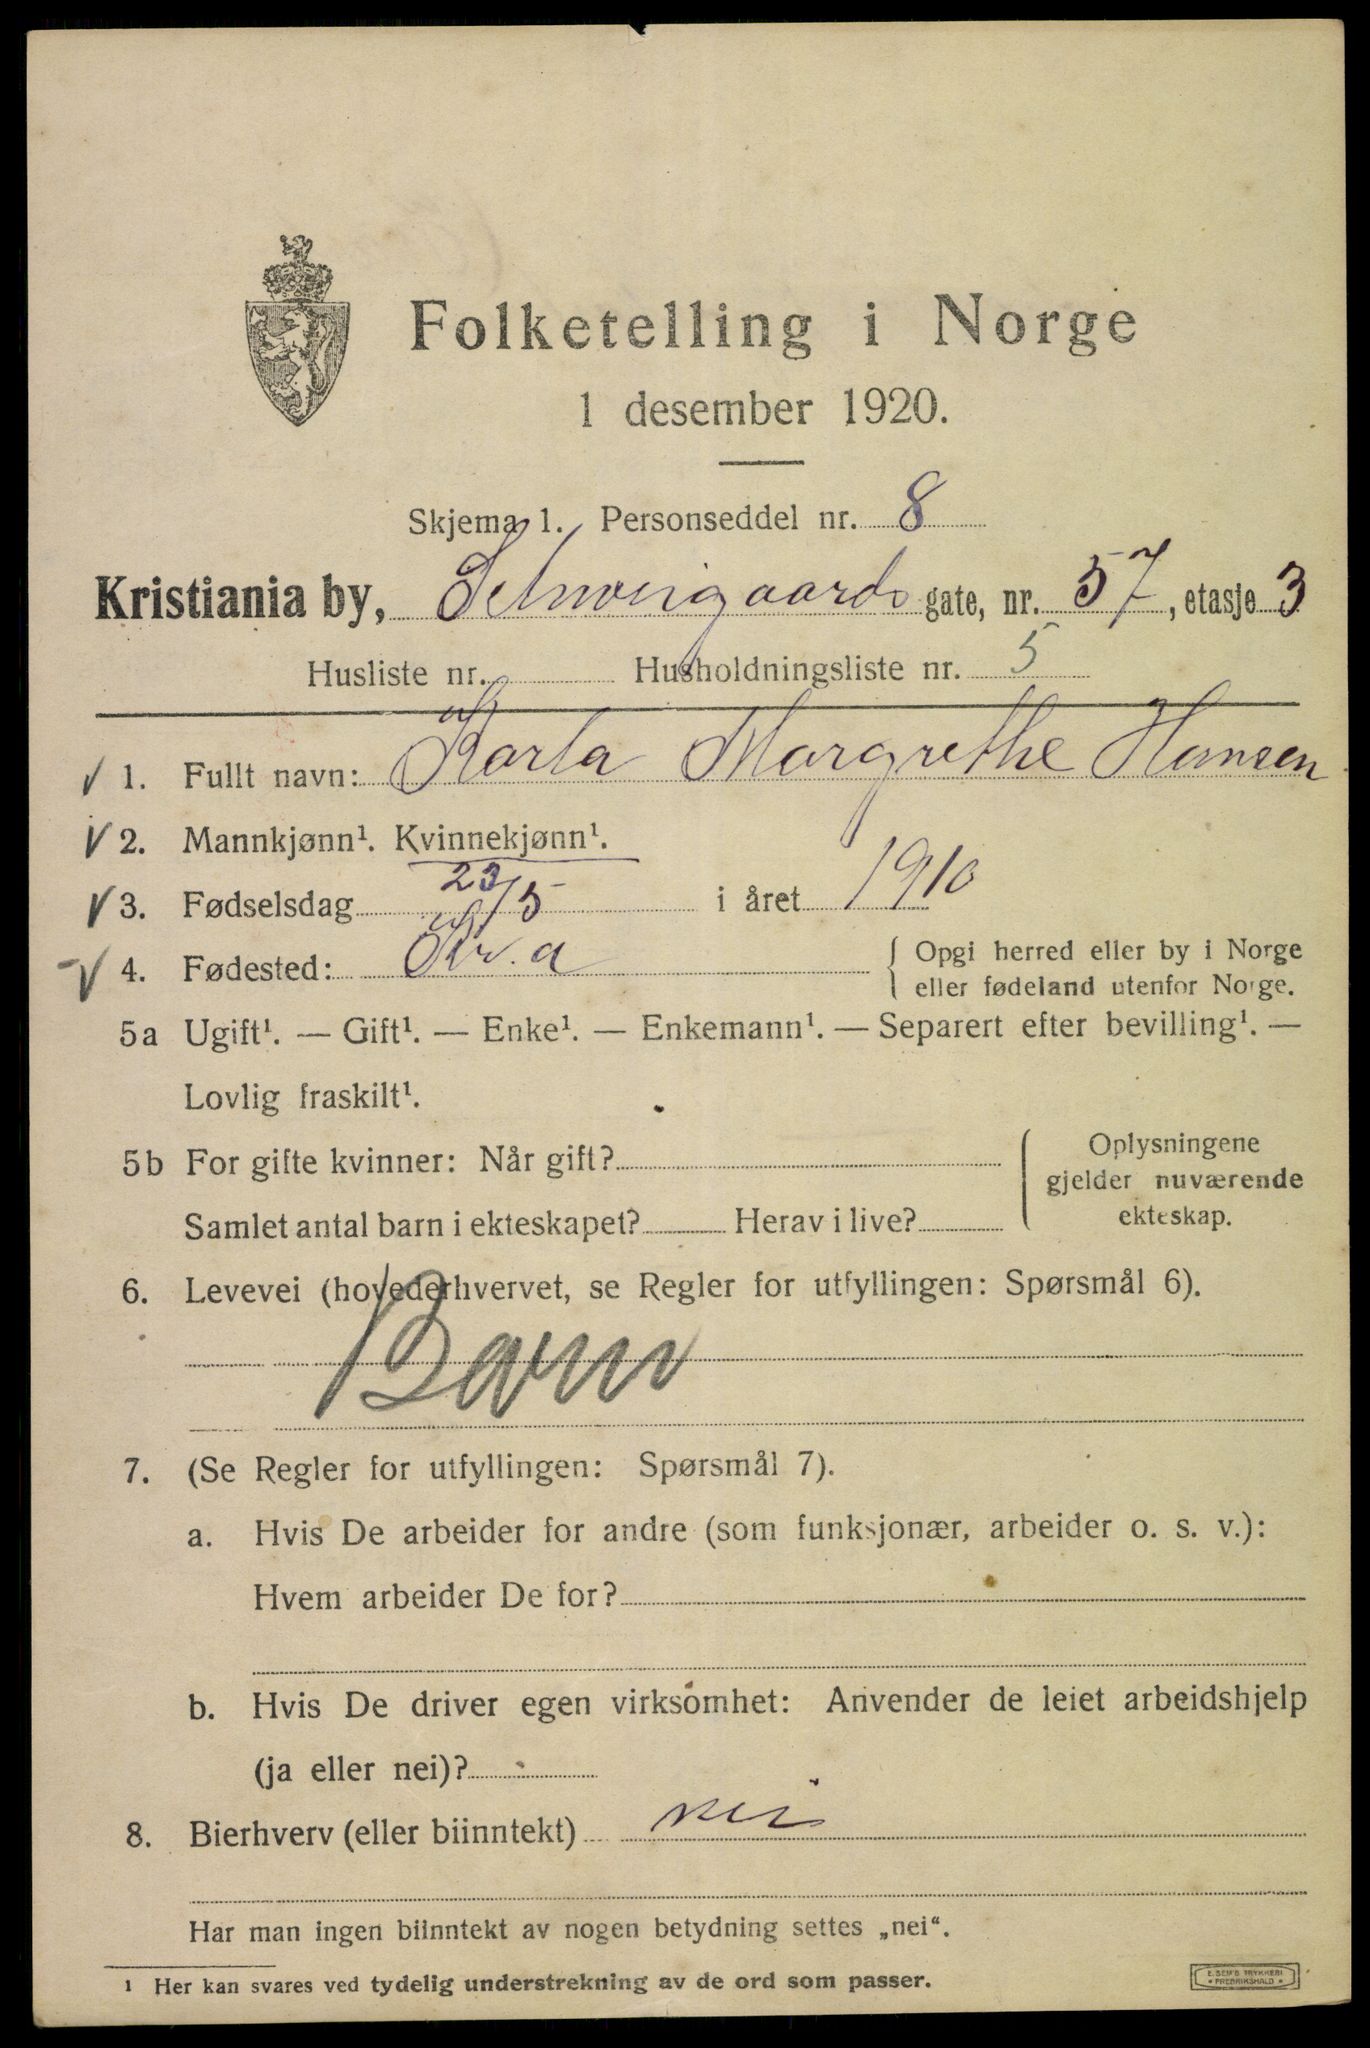 Folketelling i Norge
1 desember 1920.
Skjema 1. Personseddel nr. 8
Kristiania by, Schweigaards gate, nr. 57, etasje 3
Husliste nr. Husholdningsliste nr. 5
1. Fullt navn: Karla Margrethe Hansen
2. Mannkjønn¹. Kvinnekjønn¹.
3. Fødselsdag 23/5 i året 1910
4. Fødested: Kr.a { Opgi herred eller by i Norge
eller fødeland utenfor Norge.
5a Ugift¹. — Gift¹. — Enke¹. — Enkemann¹. — Separert efter bevilling¹. —
Lovlig fraskilt¹.
5b For gifte kvinner: Når gift? Oplysningene
gjelder nuværende
Samlet antal barn i ekteskapet? Herav i live? ekteskap.
6. Levevei (hovederhvervet, se Regler for utfyllingen: Spørsmål 6).
Barn
7. (Se Regler for utfyllingen: Spørsmål 7).
a. Hvis De arbeider for andre (som funksjonær, arbeider o. s. v.):
Hvem arbeider De for?
b. Hvis De driver egen virksomhet: Anvender de leiet arbeidshjelp
(ja eller nei)?
8. Bierhverv (eller biinntekt) nei
Har man ingen biinntekt av nogen betydning settes „nei“.
¹ Her kan svares ved tydelig understrekning av de ord som passer.
E. SEM'S TRYKKERI
* FREDRIKSHALD *